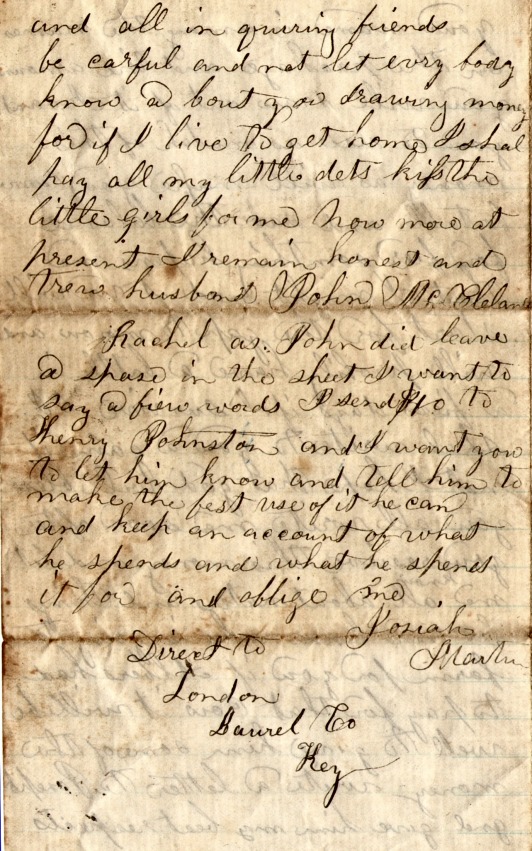 and all in quiring friends
be carful and not let evry body
know a bout you drawing mony
for if I live to get home I shal
pay all my little dets kiss the
little girls for me now more at
present I remain honest and
trew husband John McClelan
Rachel as John did leave
a spase in the sheet I want to
say a fiew words I send to
Henry Johnston and I want you
to let him know and tell him to
make the best use of it he can
and keep an account of what
he spends and what he spends
it for and oblige me
Josiah
Martin
Direct to
London
Laurel Co
Key